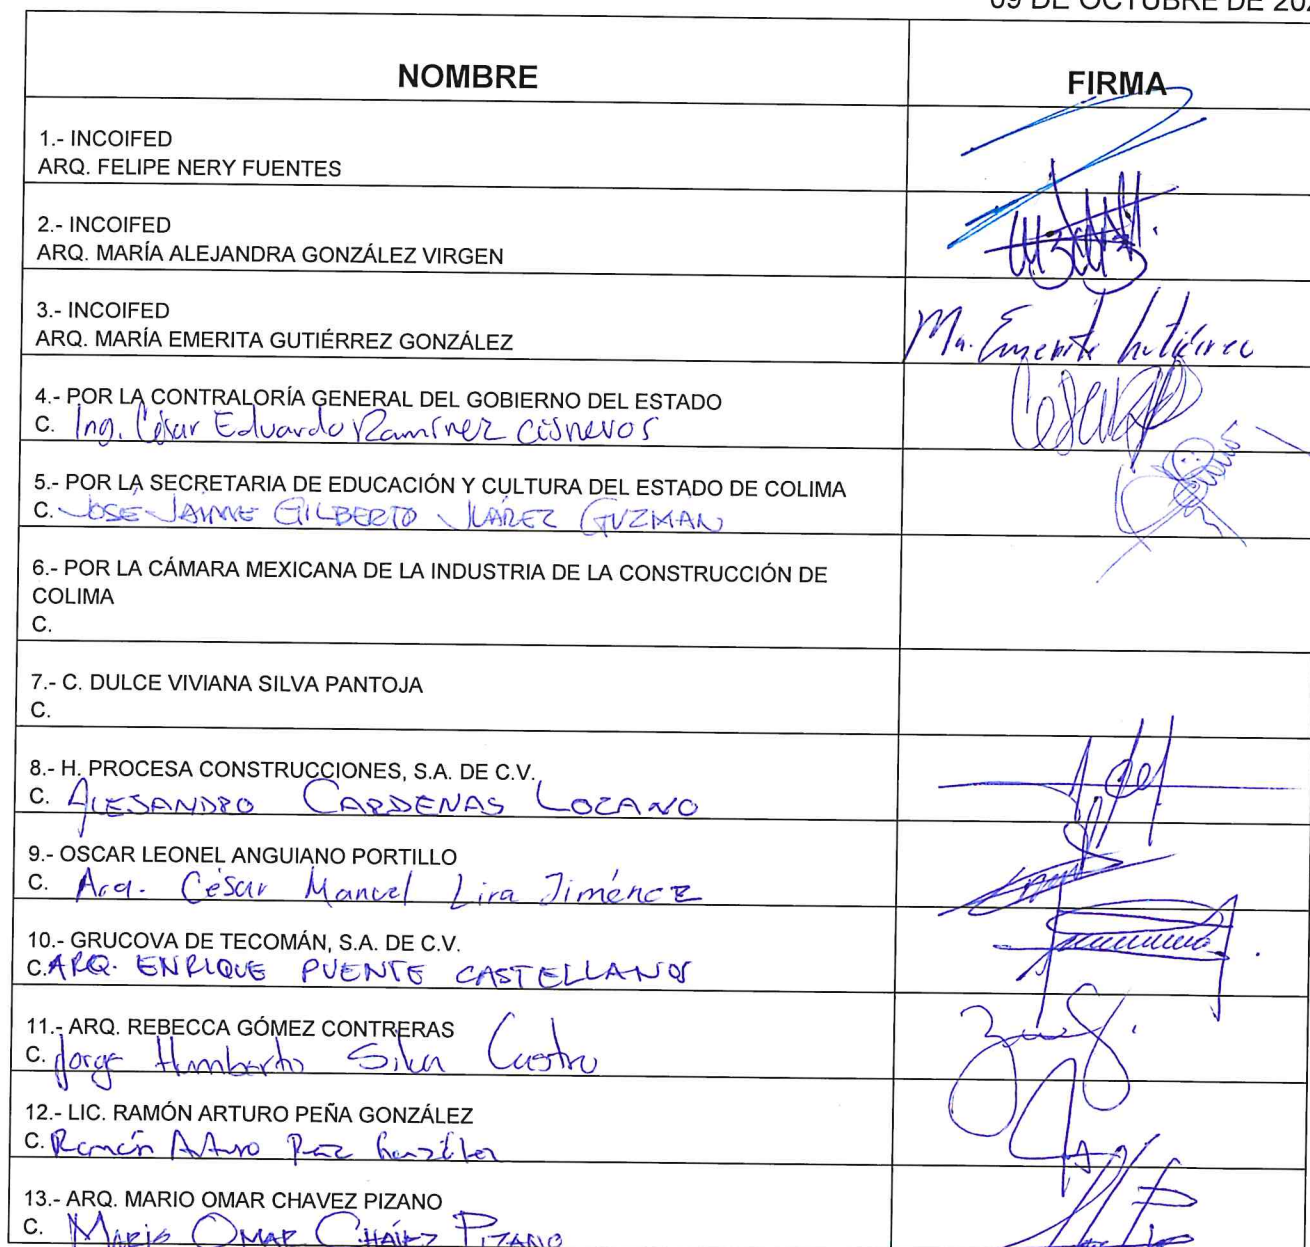 09 DE OCTUBRE DE 202
NOMBRE
FIRMA
1.- INCOIFED
ARQ. FELIPE NERY FUENTES
2.- INCOIFED
ARQ. MARÍA ALEJANDRA GONZÁLEZ VIRGEN
3.- INCOIFED
ARQ. MARÍA EMERITA GUTIÉRREZ GONZÁLEZ
Ma. Emerita Gutiérrez
4.- POR LA CONTRALORÍA GENERAL DEL GOBIERNO DEL ESTADO
C. Ing. César Eduardo Ramírez Cisneros
5.- POR LA SECRETARIA DE EDUCACIÓN Y CULTURA DEL ESTADO DE COLIMA
C. JOSÉ JAIME GILBERTO JUÁREZ GUZMAN
6.- POR LA CÁMARA MEXICANA DE LA INDUSTRIA DE LA CONSTRUCCIÓN DE
COLIMA
C.
7.- C. DULCE VIVIANA SILVA PANTOJA
C.
8.- H. PROCESA CONSTRUCCIONES, S.A. DE C.V.
C. ALEJANDRO CARDENAS LOZANO
9.- OSCAR LEONEL ANGUIANO PORTILLO
C. Arq. César Manuel Lira Jiménez
10.- GRUCOVA DE TECOMÁN, S.A. DE C.V.
C. ARQ. ENRIQUE PUENTE CASTELLANOS
11.- ARQ. REBECCA GÓMEZ CONTRERAS
C. Jorge Humberto Silva Castro
12.- LIC. RAMÓN ARTURO PEÑA GONZÁLEZ
C. Ramón Arturo Peña González
13.- ARQ. MARIO OMAR CHAVEZ PIZANO
C. MARIO OMAR CHÁVEZ PIZANO